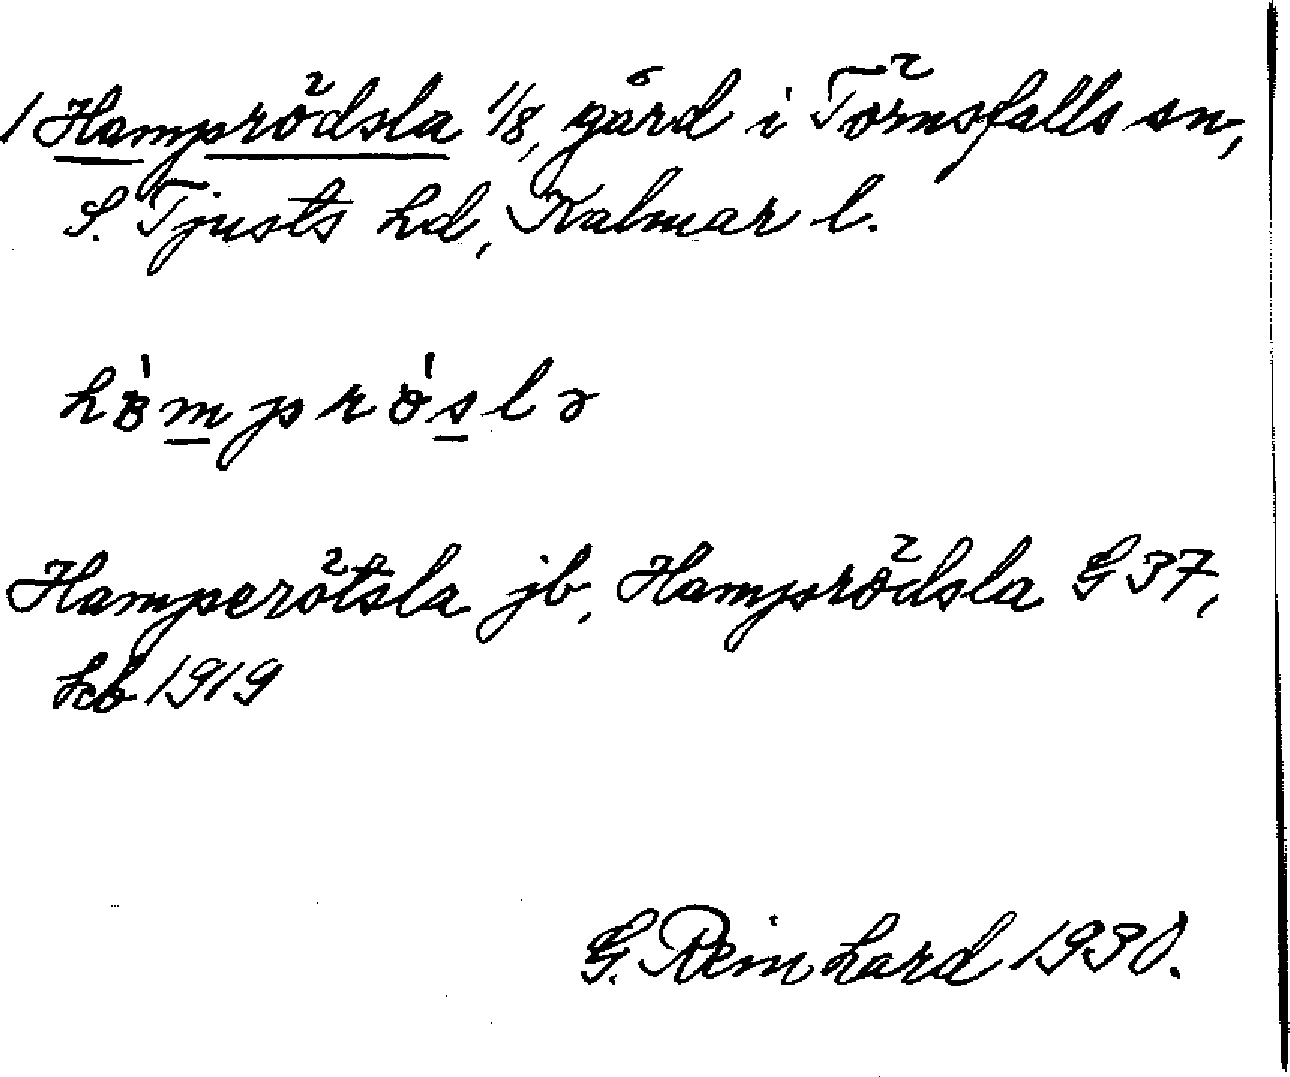 1 Hamprödsla 1/8, gård i Törnsfalls sn,
S. Tjusts hd, Kalmar l.
Hamperötsla jb, Hamprödsla G 37,
hb 1919
G. Reinhard 1930.